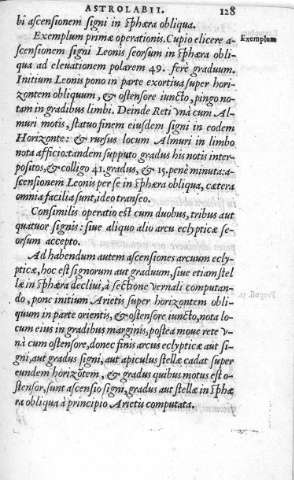 ASTROLABII. 128
bi ascensionem signi in sphæra obliqua.
Exemplum primæ operationis. Cupio elicere a-
scensionem signi Leonis seorsum in sphæra obli-
qua ad eleuationem polarem 49. fere graduum.
Initium Leonis pono in parte exortiua super hori-
zontem obliquum, & ostensore iuncto, pingo no-
tam in gradibus limbi. Deinde Reti vnà cum Al-
muri motis, statuo finem eiusdem signi in eodem
Horizonte: & rursus locum Almuri in limbo
nota afficio: tandem supputo gradus his notis inter-
positos, & colligo 41. gradus, & 15. pene minuta: a-
scensionem Leonis per se in sphæra obliqua, cætera
omnia facilia sunt, ideo transeo.
Consimilis operatio est cum duobus, tribus aut
quatuor signis: siue aliquo alio arcu eclypticæ se-
orsum accepto.
Ad habendum autem ascensiones arcuum ecly-
pticæ, hoc est signorum aut graduum, siue etiam stel
læ in sphæra decliui, à sectione vernali computan-
do, pone initium Arietis super horizontem obli-
quum in parte orientis, & ostensore iuncto, nota lo-
cum eius in gradibus marginis, postea moue rete v-
nà cum ostensore, donec finis arcus eclypticæ aut si-
gni, aut gradus signi, aut apiculus stellæ cadat super
eundem horizõtem, & gradus quibus motus est o-
stensor, sunt ascensio signi, gradus aut stellæ in sphæ
ra obliqua à principio Arietis computata.
Exemplum